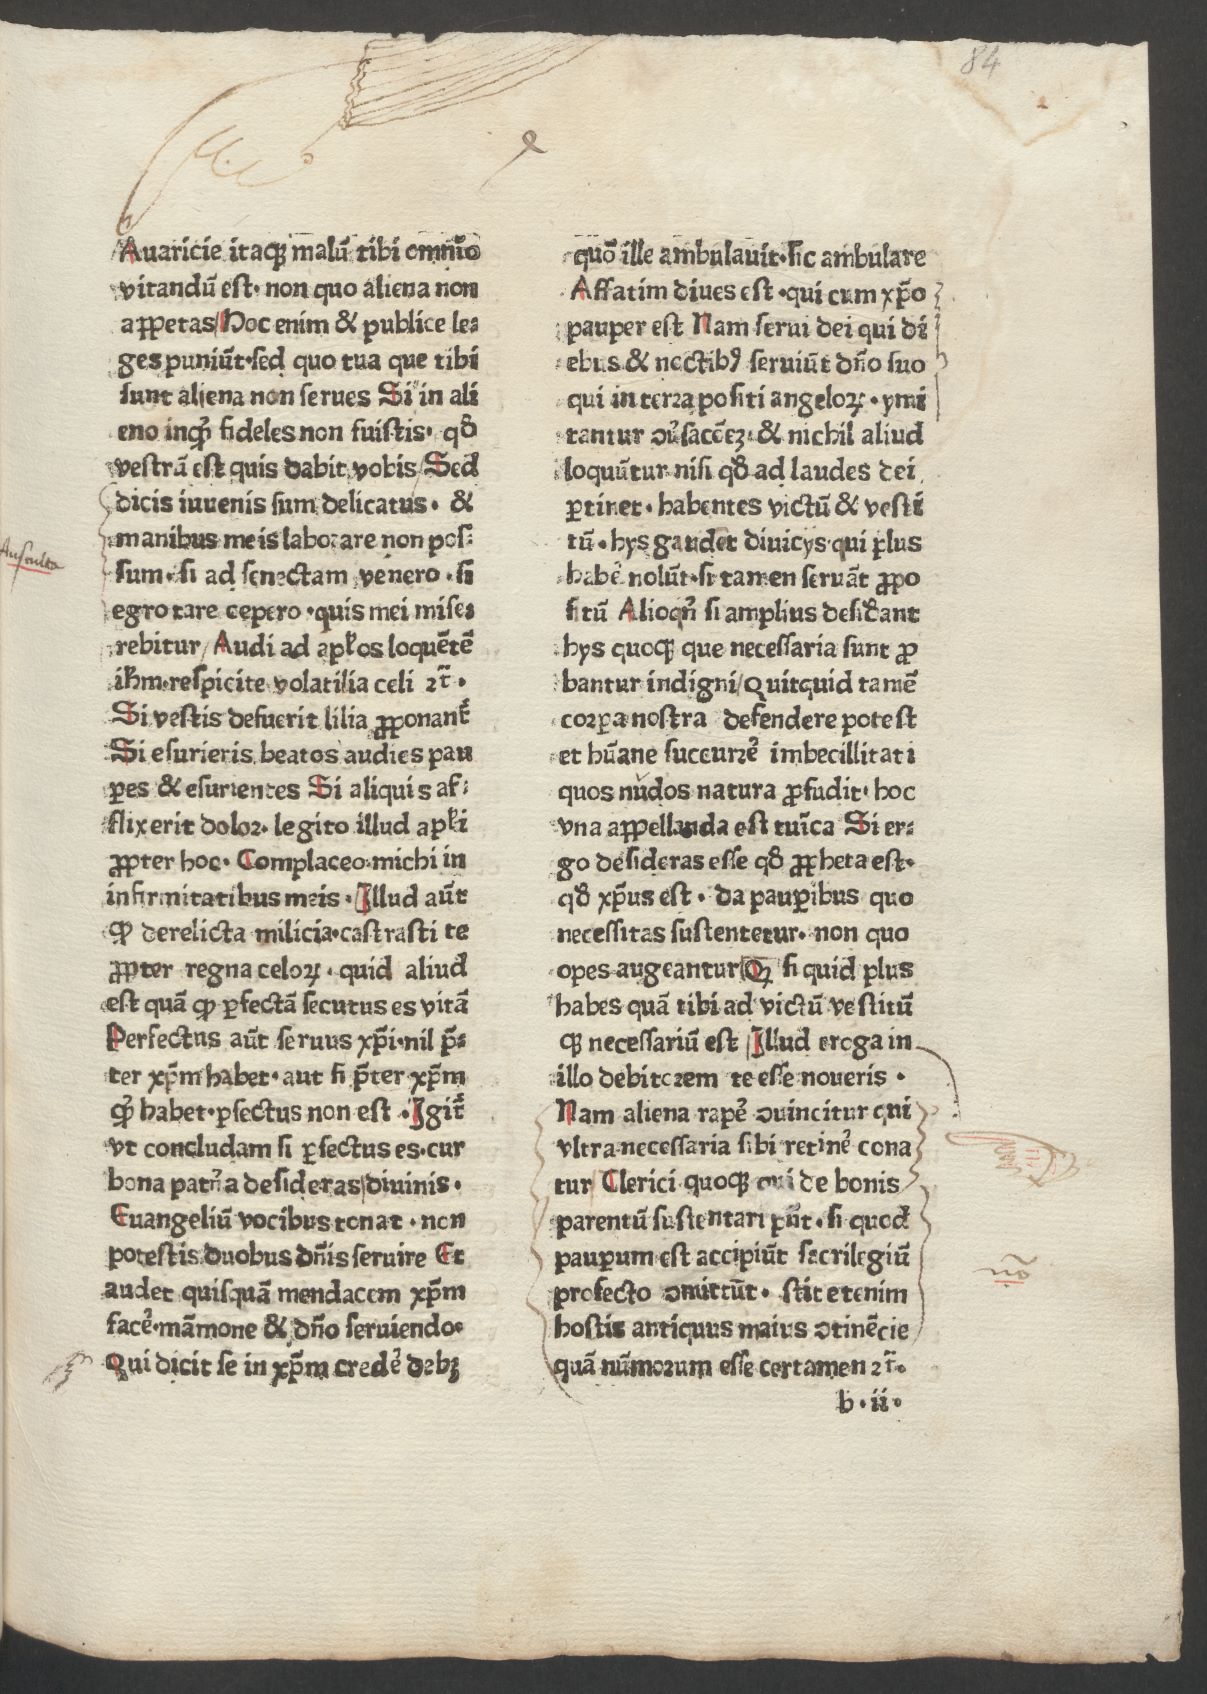 84
Auaricie itaqȝ malū tibi omnīo
vitandū est· non quo aliena non
appetas/ Hoc enim & publice le⸗
ges puniūt·sed quo tua que tibi
sunt aliena non serues Si in ali
eno inqͫ fideles non fuistis· qđ
vestrā est quis dabit vobis/ Sed
dicis iuuenis sum delicatus· &
manibus meis laborare non pos⸗
sum·si ad senectam venero·si
egrotare cepero·quis mei mise⸗
rebitur/ Audi ad apl̄os loquētē
ihm̄·respicite volatilia celi ⁊c̄·
Si vestis defuerit lilia ꝓponant᷑
Si esurieris beatos audies pau
ꝑes & esurientes Si aliquis af⸗
flixerit dolor·legito illud apl̄i
ꝓpter hoc· Complaceo michi in
infirmitatibus meis· Illud aūt
ꝙ derelicta milicia·castrasti te
ꝓpter regna celoꝝ·quid aliud
est quā ꝙ ꝑfectā secutus es vitā
Perfectus aūt seruus xp̄i·nil p̄⸗
ter xp̄m habet·aut si p̄ter xp̄m
qͫ habet·ꝑfectus non est·Igit᷑
vt concludam si ꝑfectus es·cur
bona patn̄a desideras/diuinis·
Euangeliū vocibus tonat·non
potestis duobus dn̄is seruire Et
audet quisquā mendacem xp̄m
face᷑·māmone & dn̄o seruiendo·
Qui dicit se in xp̄m crede᷑ debȝ
Ausculta
quō ille ambulauit·sic ambulare
Affatim diues est·qui cum xp̄o
pauper est Nam serui dei qui di
ebus & noctibꝰ seruiūt dn̄o suo
qui in terra positi angeloꝝ·ymi
tantur ꝯ̄u̓sacēȝ·& nichil aliud
loquūtur nisi qđ ad laudes dei
ꝑtinet·habentes victū & vesti
tū·hys gaudet diuicys·qui plus
habe᷑ nolūt·si tamen seruāt ꝓpo
sitū Alioqn̄ si amplius desid̓ant
hys quoqȝ que necessaria sunt ꝓ
bantur indigni/Quitquid tamē
corpa nostra defendere potest
et hūane succurre᷑ imbecillitati
quos nudos natura ꝓfudit·hoc
vna appellanda est tuīca Si er⸗
go desideras esse qđ ꝓpheta est·
qđ xp̄us est·da pauꝑibus quo
necessitas sustentetur·non quo
opes augeantur/Qꝫ si quid plus
habes quā tibi ad victū vestitū
qȝ necessariū est /Illud eroga in
illo debitorem te esse noueris·
Nam aliena rape᷑ ꝯuincitur qui
vltra necessaria sibi retine᷑ cona
tur Clerici quoqȝ qui de bonis
parentū sustentari pn̄t·si quod
pauꝑum est accipiūt sacrilegiū
profecto ꝯmittūt·stit etenim
hostis antiquus maius ꝯtinēcie
quā nūmorum esse certamen ⁊c̄·
nō
b·ii·